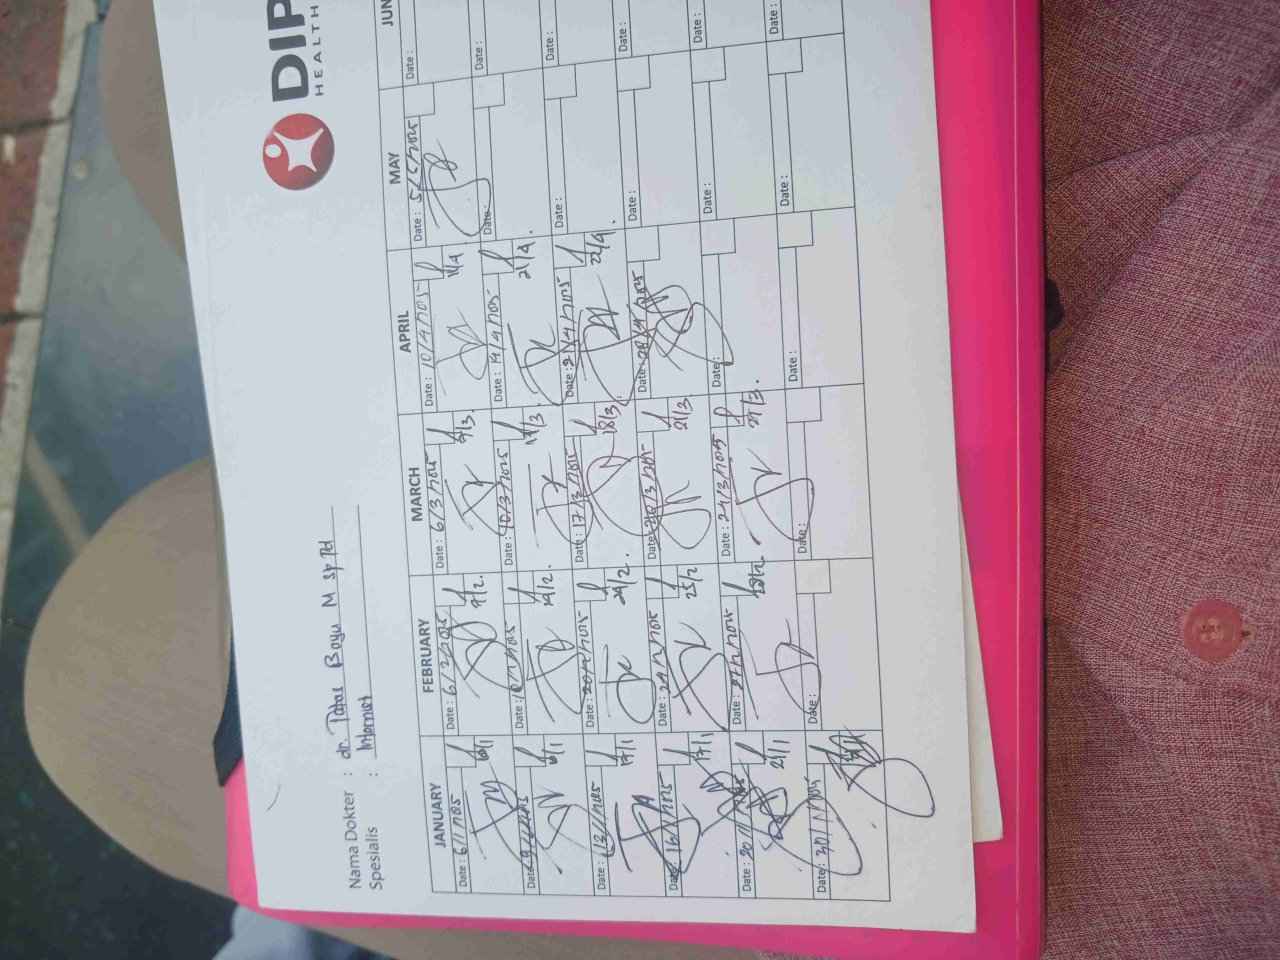 DIP
HEALTH
Nama Dokter : dr. Bayu M Sp.Pd
Spesialis : Internist
JANUARY FEBRUARY MARCH APRIL MAY JUN
Date: 6/1/2025 Date: 6/2/2025 Date: 6/3/2025 Date: 10/4/2025 Date: 5/5/2025 Date:
7/2. 11/4
Date: 9/1/2025 Date: Date: 10/3/2025 Date: 14/4/2025 Date: Date:
14/2. 21/4.
Date: 13/1/2025 Date: 20/2/2025 Date: 17/3/2025 Date: 21/4/2025 Date: Date:
17/1 24/2. 18/3. 22/4.
Date: 16/1/2025 Date: 24/2/2025 Date: 20/3/2025 Date: 28/4/2025 Date: Date:
17/1 25/2 21/3
Date: 20/1/2025 Date: 27/2/2025 Date: 24/3/2025 Date: Date: Date:
21/1 28/2. 27/3.
Date: 30/1/2025 Date: Date: Date: Date: Date: